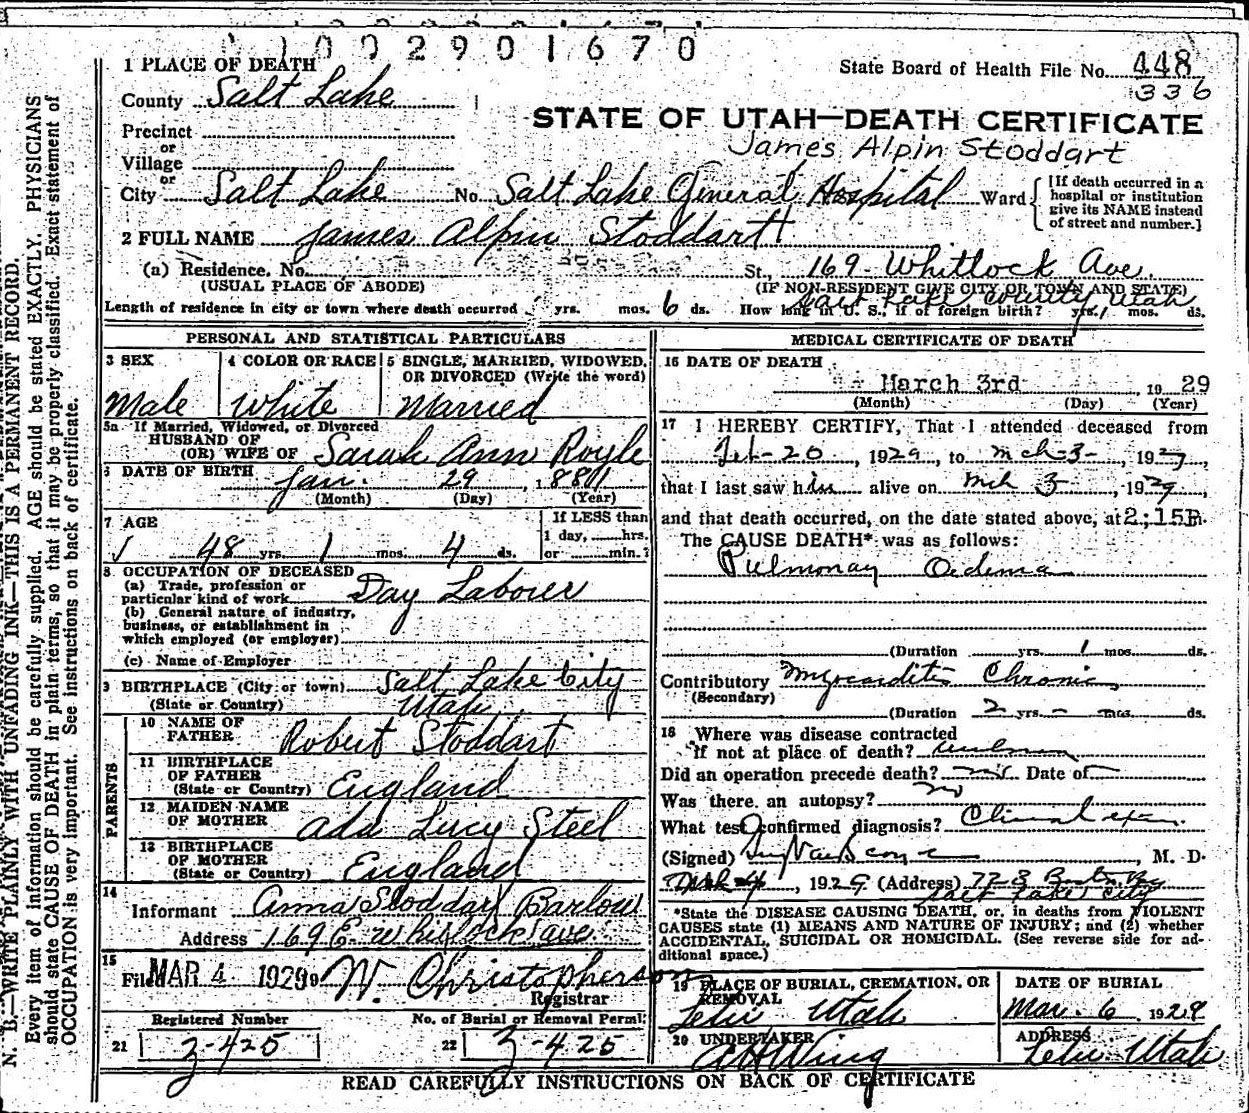 1002901670
1 PLACE OF DEATH
State Board of Health File No. 448
336
County Salt Lake
STATE OF UTAH—DEATH CERTIFICATE
Precinct
or
James Alpin Stoddart
Village
or
City Salt Lake No. Salt Lake General Hospital Ward
[If death occurred in a
hospital or institution
give its NAME instead
of street and number.]
2 FULL NAME James Alpin Stoddart
(a) Residence. No. St., 169 Whitlock Ave.
(USUAL PLACE OF ABODE) (IF NON-RESIDENT GIVE CITY OR TOWN AND STATE)
Salt Lake County Utah
Length of residence in city or town where death occurred yrs. mos. 6 ds. How long in U. S., if of foreign birth? yrs. mos. ds.
PERSONAL AND STATISTICAL PARTICULARS
3 SEX
Male
4 COLOR OR RACE
White
5 SINGLE, MARRIED, WIDOWED,
OR DIVORCED (Write the word)
Married
5a If Married, Widowed, or Divorced
HUSBAND OF
(OR) WIFE OF Sarah Ann Royle
6 DATE OF BIRTH Jan. 29, 1881
(Month) (Day) (Year)
7 AGE
48 yrs. 1 mos. 4 ds.
If LESS than
1 day, hrs.
or min.?
8 OCCUPATION OF DECEASED
(a) Trade, profession or
particular kind of work Day Laborer
(b) General nature of industry,
business, or establishment in
which employed (or employer)
(c) Name of Employer
9 BIRTHPLACE (City or town) Salt Lake City
(State or Country) Utah
PARENTS
10 NAME OF
FATHER Robert Stoddart
11 BIRTHPLACE
OF FATHER
(State or Country) England
12 MAIDEN NAME
OF MOTHER Ada Lucy Steel
13 BIRTHPLACE
OF MOTHER
(State or Country) England
14
Informant Anna Stoddart Barlow
Address 169 E. Whitlock Ave
15
Filed MAR 4 1929 W. Christopherson
Registrar
Registered Number No. of Burial or Removal Permit
21 3-425 22 3-425
MEDICAL CERTIFICATE OF DEATH
16 DATE OF DEATH
March 3rd, 1929
(Month) (Day) (Year)
17 I HEREBY CERTIFY, That I attended deceased from
Feb-20, 1929, to Mch-3-, 1929,
that I last saw him alive on Mch 3, 1929,
and that death occurred, on the date stated above, at 2:15P.
The CAUSE DEATH* was as follows:
Pulmonay Oedema
(Duration yrs. 1 mos. ds.
Contributory Myocarditis Chronic
(Secondary)
(Duration 2 yrs. - mos. ds.
18 Where was disease contracted
if not at place of death?
Did an operation precede death? no Date of
Was there an autopsy? no
What test confirmed diagnosis? Clinical exam.
(Signed) , M. D.
Mch 4, 1929 (Address)
Salt Lake City
*State the DISEASE CAUSING DEATH, or, in deaths from VIOLENT
CAUSES state (1) MEANS AND NATURE OF INJURY; and (2) whether
ACCIDENTAL, SUICIDAL OR HOMICIDAL. (See reverse side for ad-
ditional space.)
19 PLACE OF BURIAL, CREMATION, OR
REMOVAL
Lehi Utah
DATE OF BURIAL
Mar. 6, 1929
20 UNDERTAKER
A H Wing
ADDRESS
Lehi Utah
READ CAREFULLY INSTRUCTIONS ON BACK OF CERTIFICATE
N. B.—WRITE PLAINLY WITH UNFADING INK—THIS IS A PERMANENT RECORD.
Every item of information should be carefully supplied. AGE should be stated EXACTLY. PHYSICIANS
should state CAUSE OF DEATH in plain terms, so that it may be properly classified. Exact statement of
OCCUPATION is very important. See instructions on back of certificate.